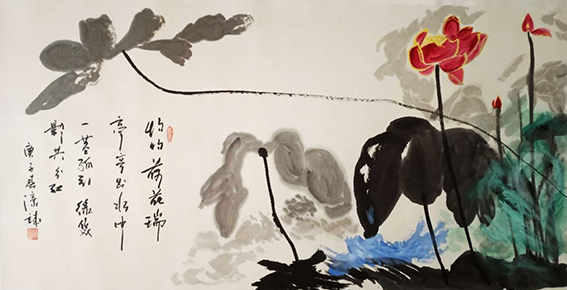 灼灼荷花瑞
亭亭出水中
一茎孤引綠双
影共分红
庚子春